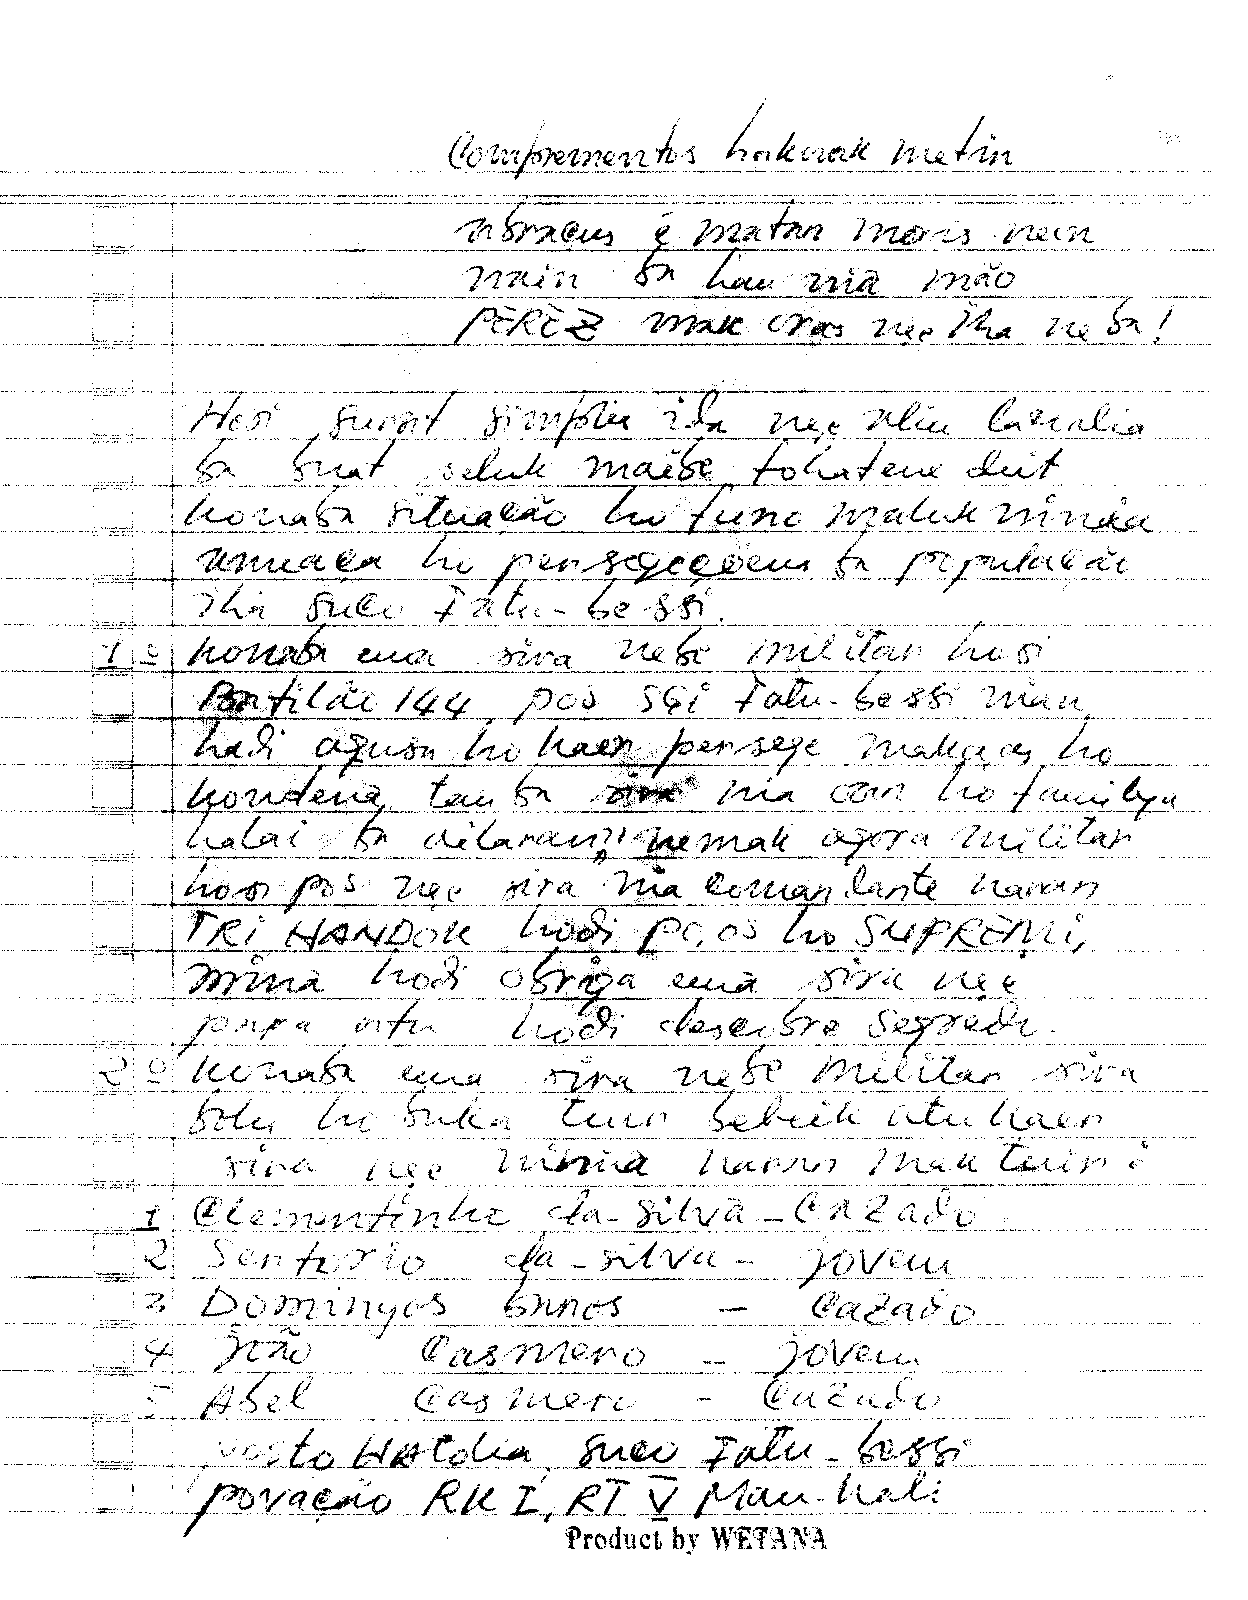 Comprementos hakuak metin
abraçus é matan moris nein
nain ba hau nia mão
PEREZ mak oras nee iha neba!
Hosi surat simples ida nee aliu laralia
ba buat seluk maibe fohatene deit
konaba situação ho funo maluk ninia
amiaça ho persegeçoens ba população
iha suco Fatu-bessi.
1º konaba ema sira nebe militar hosi
144, pos SGI Fatu-bessi nian
hadi agusa ho kaer persege makaas ho
kondena, tanba sira nia oan ho familya
halai ba ailaran, nemak agora militar
hosi pos nee sira nia comandante naran
TRI HANDOK hodi po, os ho SUPREMI,
mina hodi obriga ema sira nee
para atu hodi descobre segredu.
2º konaba ema sira nebe militar sira
bolu ho buka tuir bebeik atu kaer
sira nee ninia naran mak tuir i
1 Clementinho da-silva - Cazado
2 Sentorio da-silva - jovem
3 Domingos - Cazado
4 João Casmero - jovem
5 Abel Casmero - Cazado
posto HAtólia, suco Fatu-bessi
povação RK I, RT V Mau-hali
Product by WETANA